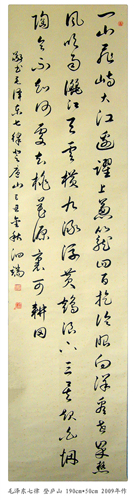 一山飛峙大江邊躍上葱蘢四百旋冷眼向洋看世界熱
風吹雨灑江天雲横九派浮黄鶴浪下三吴起白烟
陶令不知何處去桃花源裏可耕田
毛澤東七律登廬山己丑金秋
毛泽东七律 登庐山 190cm*50cm 2009年作